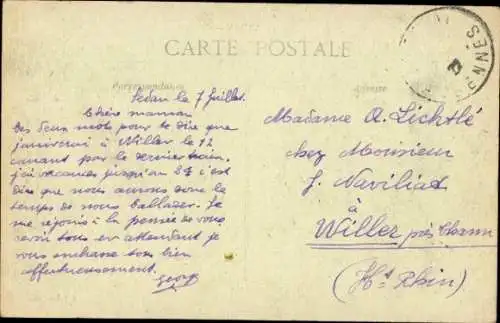 CARTE POSTALE
Correspondance
Adresse
Sedan le 7 Juillet.
Chère maman
Ces deux mots pour te dire que
j'arriverai à Willer le 12
courant par le dernier train.
j'ai vacances jusqu'au 27 c'est
dire que nous aurons donc le
temps de nous ballader. Je
me réjouis à la pensée de vous
revoir tous en attendant je
vous embrasse tous bien
affectueusement.
Georg
Madame A. Lichtlé
chez Monsieur
J. Naviliat
à
Willer près Thann
(Ht Rhin)